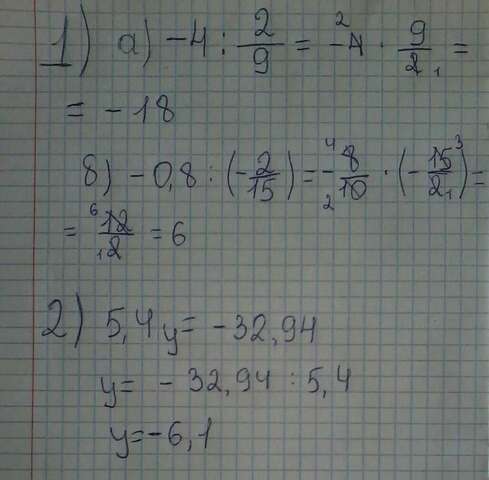 1) а) -4 : 2/9 = -4 ² · 9/2 ₁ =
= -18
б) -0,8 : (-2/15) = - ⁴8/₂10 · (-15³/2₁) =
= ⁶12/₁2 = 6
2) 5,4y = -32,94
y = -32,94 : 5,4
y = -6,1